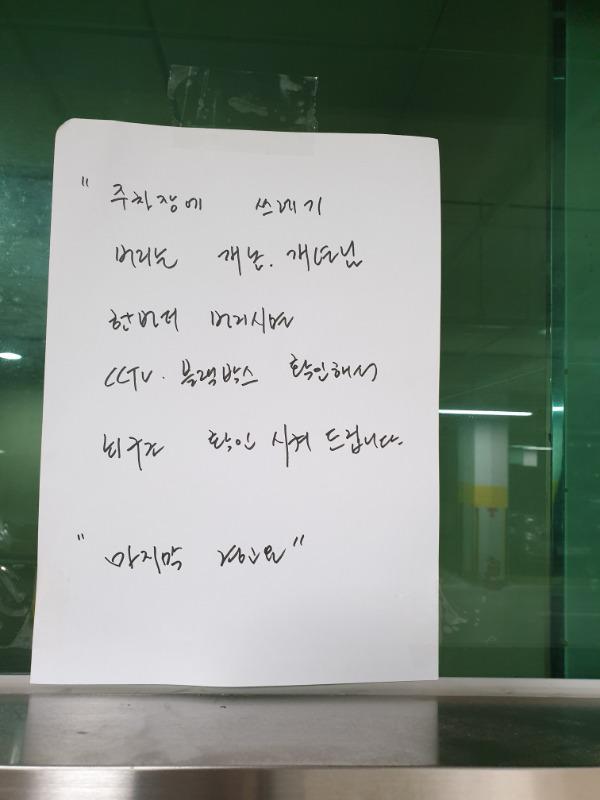 " 주차장에 쓰레기
버리는 개놈. 개년님
한번더 버리시면
CCTV. 블랙박스 확인해서
뇌구조 확인 시켜 드립니다.
" 마지막 경고요"